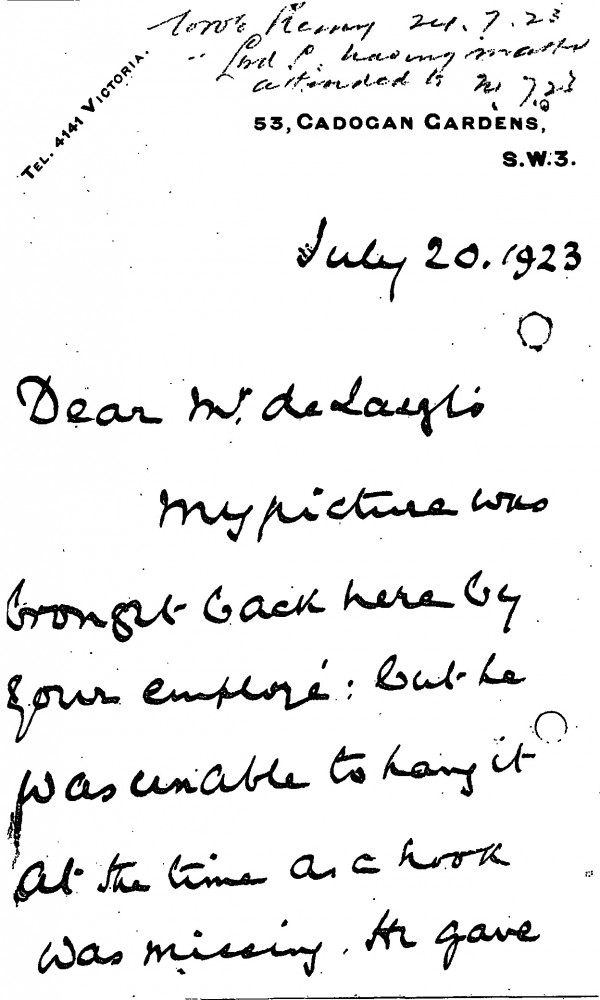 24.7.23
having
attended to 7.23
TEL. 4141 VICTORIA.
53, CADOGAN GARDENS,
S.W.3.
July 20. 1923
Dear Mr. de Laszlo
My picture was
brought back here by
your employé: but he
was unable to hang it
at the time as a hook
was missing. He gave